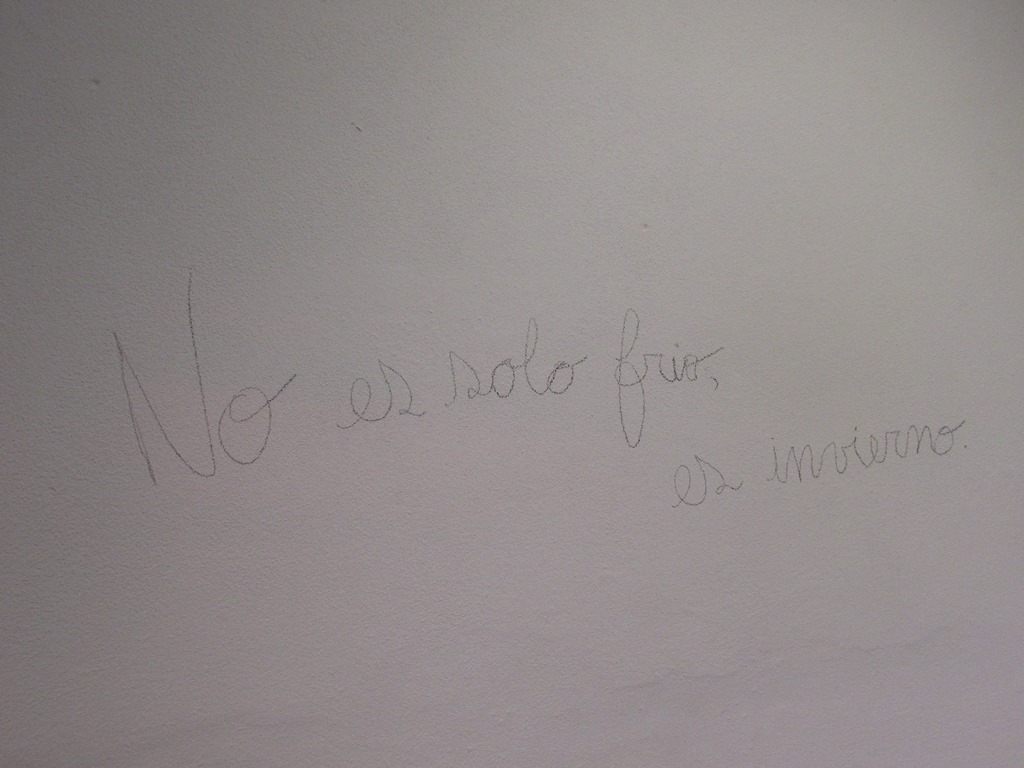 No es solo frio,
es invierno.